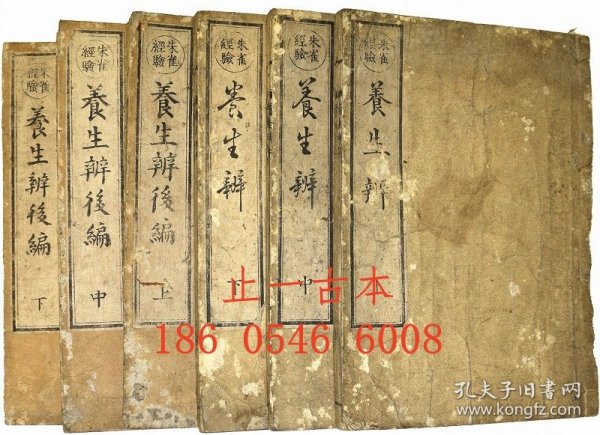 朱雀
經驗
養生辨
朱雀
經驗
養生辨
中
朱雀
經驗
養生辨
下
朱雀
經驗
養生辨後編
上
朱雀
經驗
養生辨後編
中
朱雀
經驗
養生辨後編
下
止一古本
186 0546 6008
孔夫子旧書网
www.kongfz.com